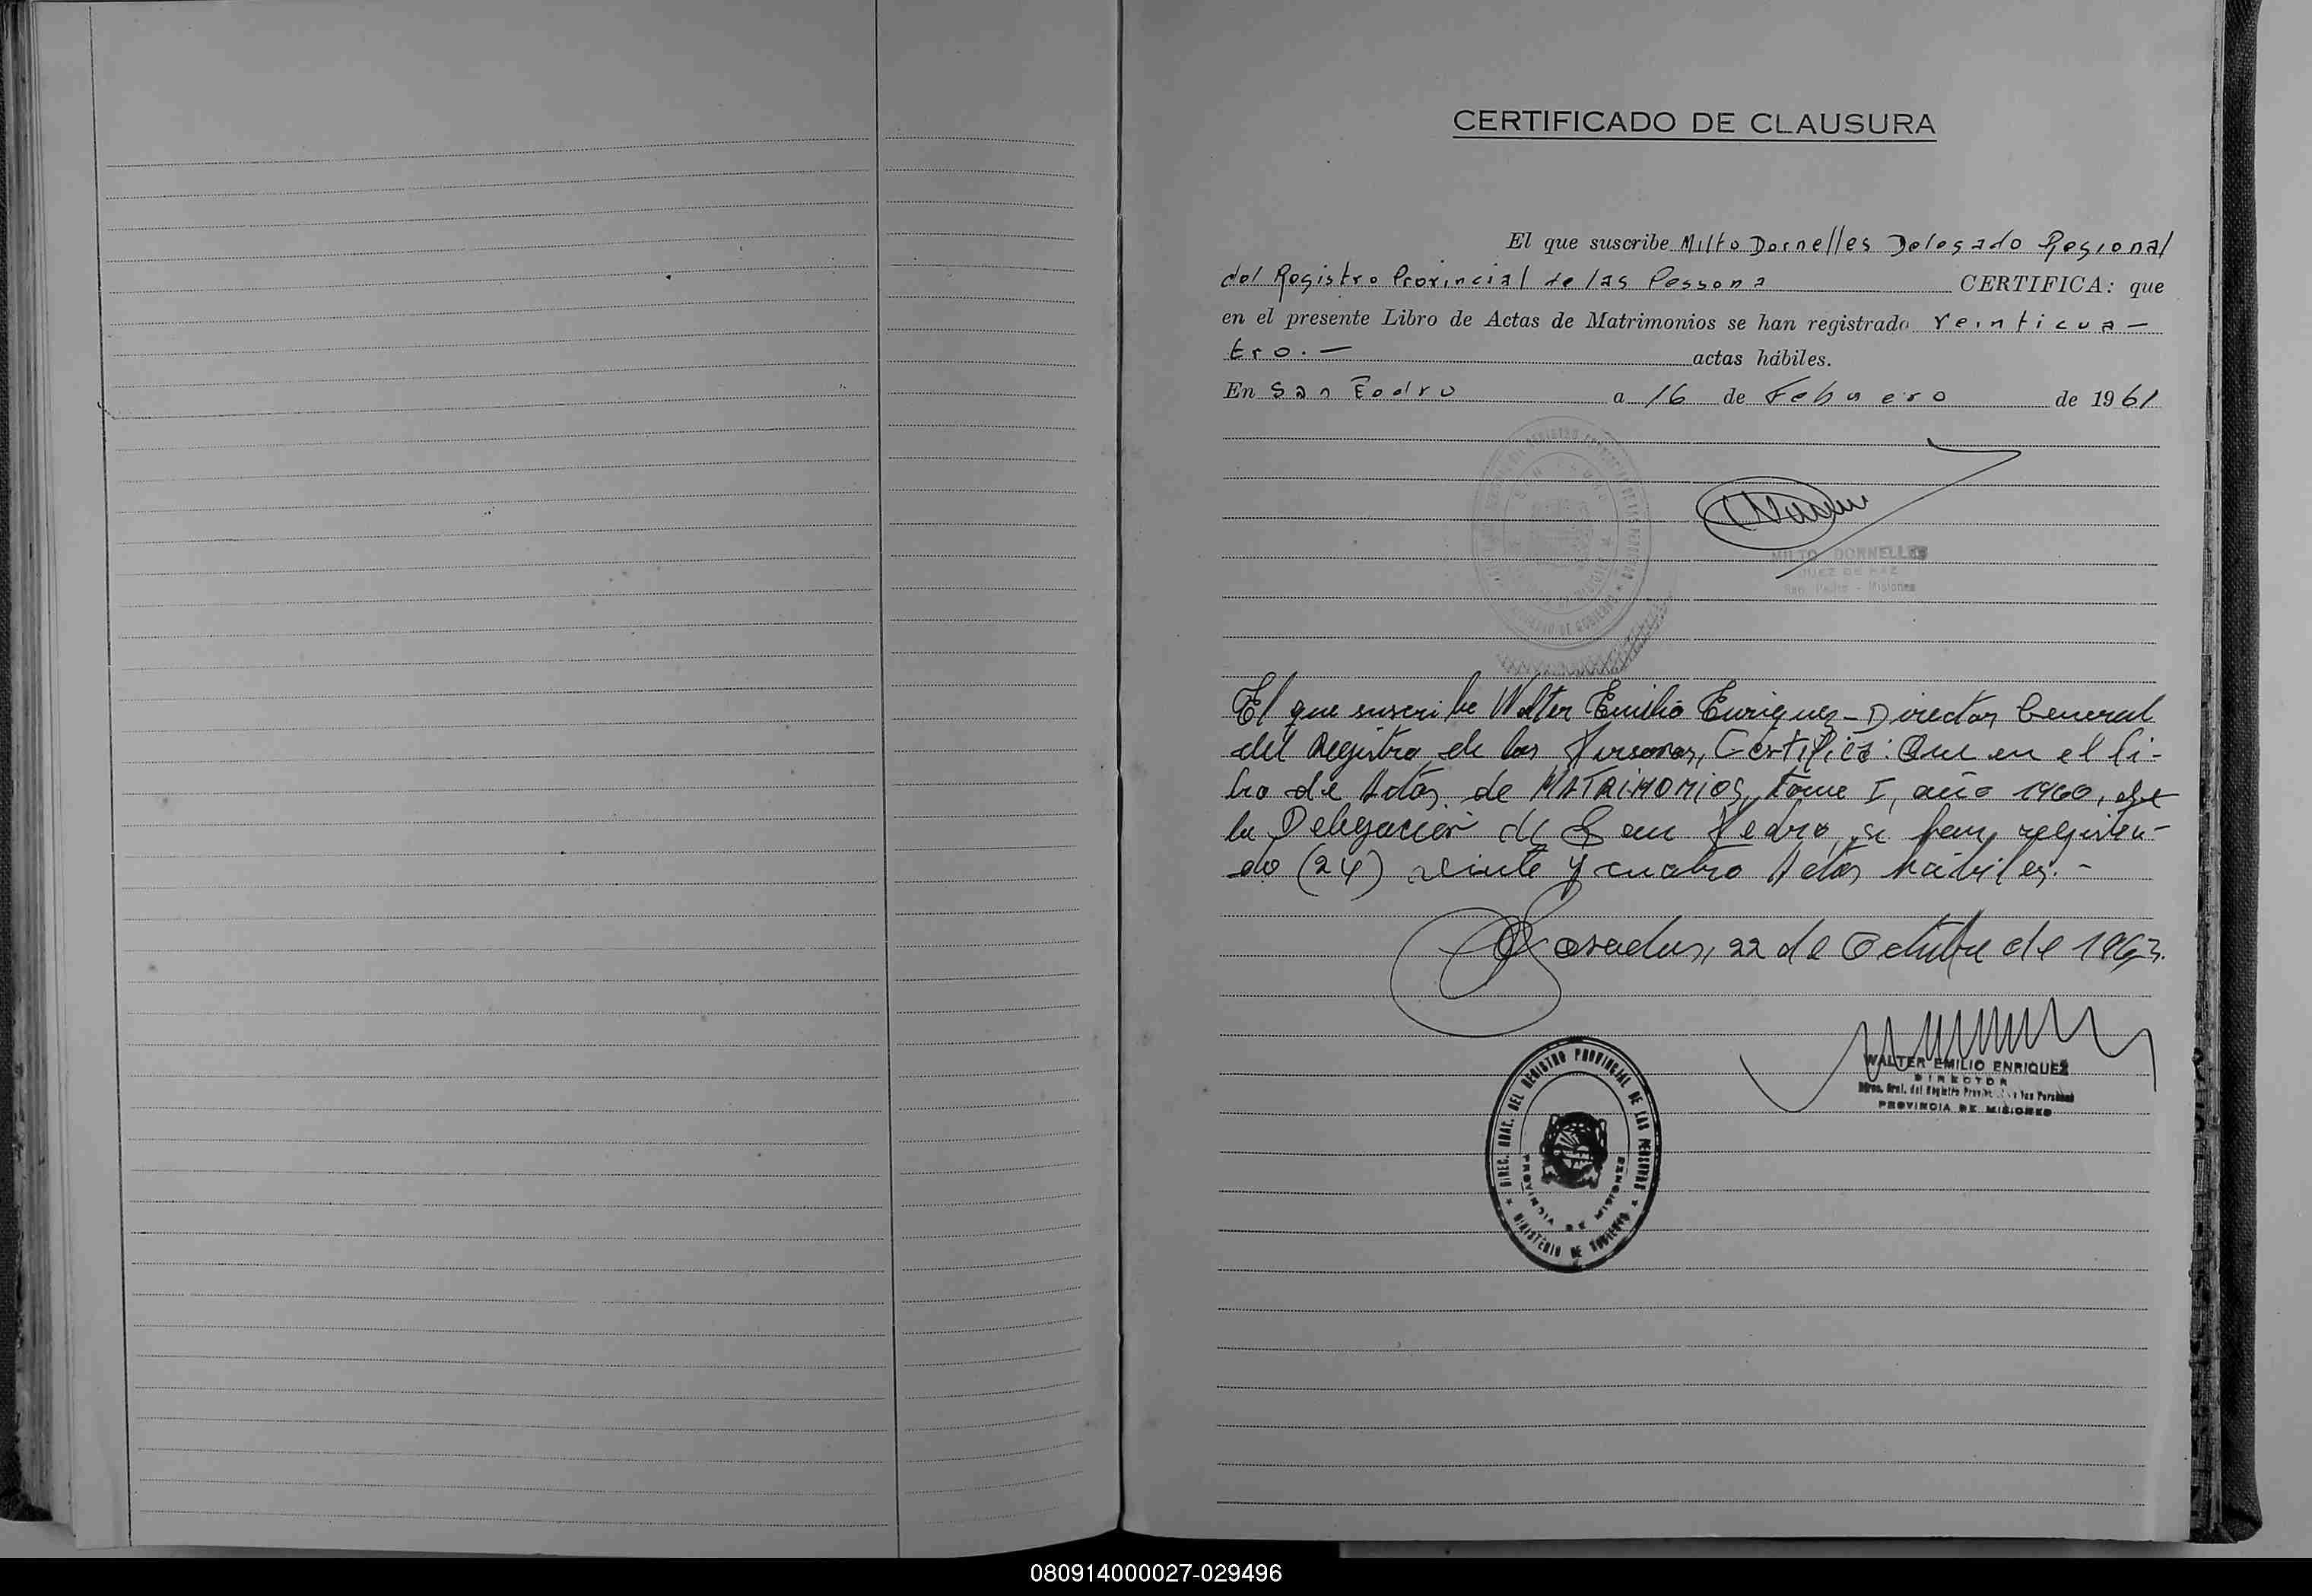 CERTIFICADO DE CLAUSURA
El que suscribe Milto Dornelles Delegado Regional
del Registro Provincial de las Persona CERTIFICA: que
en el presente Libro de Actas de Matrimonios se han registrado veinticua-
tro.- actas hábiles.
En San Pedro a 16 de Febrero de 1961
MILTO DORNELLES
JUEZ DE PAZ
San Pedro - Misiones
El que suscribe Walter Emilio Enriquez - Director General
del Registro de las Personas, Certifica: Que en el li-
bro de Actas de MATRIMONIOS, tomo I, año 1960, de
la Delegación de San Pedro, se han registra-
do (24) veinte y cuatro Actas hábiles.-
Posadas, 22 de Octubre de 1963.
WALTER EMILIO ENRIQUEZ
DIRECTOR
Direc. Gral. del Registro Provin. las Personas
PROVINCIA DE MISIONES
DIREC. GRAL. DEL REGISTRO PROVINCIAL DE LAS PERSONAS
PROVINCIA DE MISIONES
MINISTERIO DE GOBIERNO
080914000027-029496